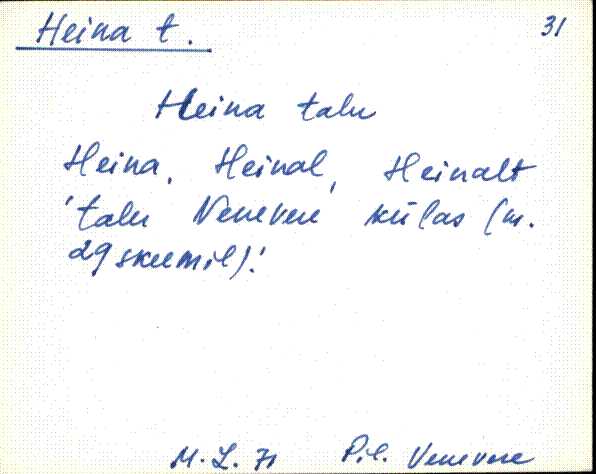 Heina t. 31
Heina talu
Heina, Heinal, Heinalt
'talu Venevere külas (m.
29 skeemil).'
M. L. 71 Pil. Venevere